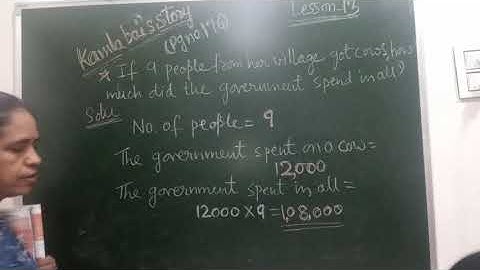 Kamla bai's story
(Pg no 176)
Lesson-13
* If 9 people from her village got cows, how
much did the government spend in all?
Solu:
No. of people = 9
The government spent on a cow =
12,000
The government spent in all =
12000 × 9 = 1,08,000